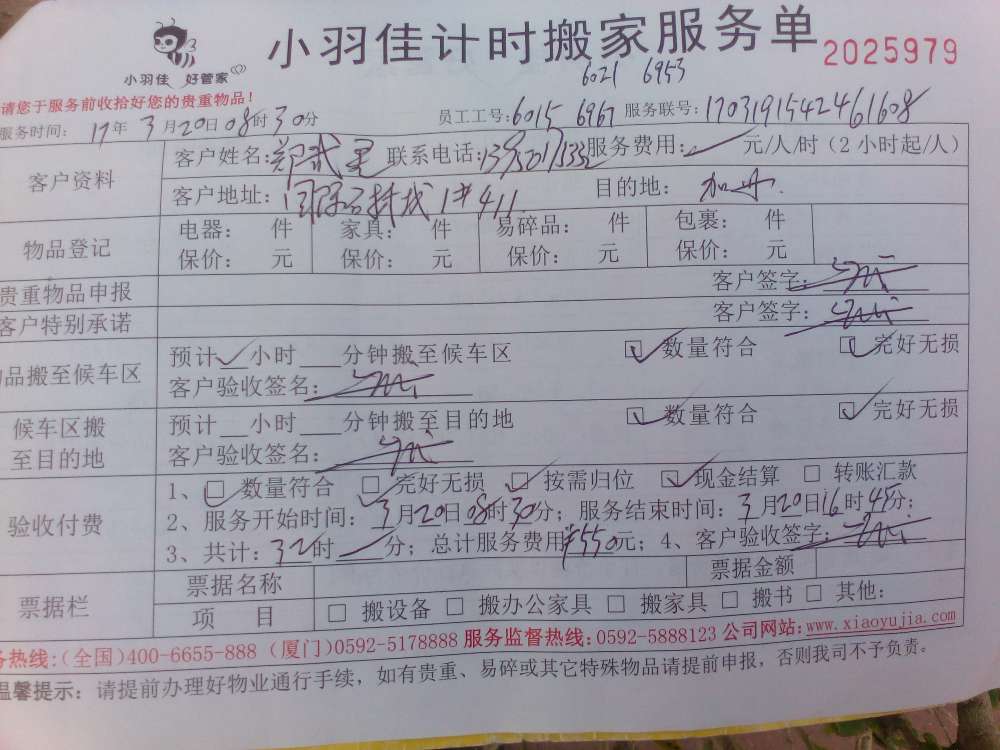 小羽佳计时搬家服务单 2025979
小羽佳 好管家
6021 6953
请您于服务前收拾好您的贵重物品!
员工工号: 6015 6967 服务联号: 1703191542461608
服务时间: 17年 3月20日08时30分
客户资料
客户姓名: 联系电话: 服务费用: 元/人/时 (2小时起/人)
客户地址: 1#411 目的地:
物品登记
电器: 件 家具: 件 易碎品: 件 包裹: 件
保价: 元 保价: 元 保价: 元 保价: 元
贵重物品申报 客户签字:
客户特别承诺 客户签字:
品搬至候车区
预计 小时 分钟搬至候车区 数量符合 完好无损
客户验收签名:
候车区搬至目的地
预计 小时 分钟搬至目的地 数量符合 完好无损
客户验收签名:
验收付费
1、 数量符合 完好无损 按需归位 现金结算 □ 转账汇款
2、服务开始时间: 3月20日08时30分; 服务结束时间: 3月20日16时45分;
3、共计: 32时 分; 总计服务费用¥550元; 4、客户验收签字:
票据栏
票据名称 票据金额
项 目 □ 搬设备 □ 搬办公家具 □ 搬家具 □ 搬书 □ 其他:
务热线:(全国)400-6655-888 (厦门)0592-5178888 服务监督热线:0592-5888123 公司网站:www.xiaoyujia.com
温馨提示: 请提前办理好物业通行手续, 如有贵重、易碎或其它特殊物品请提前申报, 否则我司不予负责。